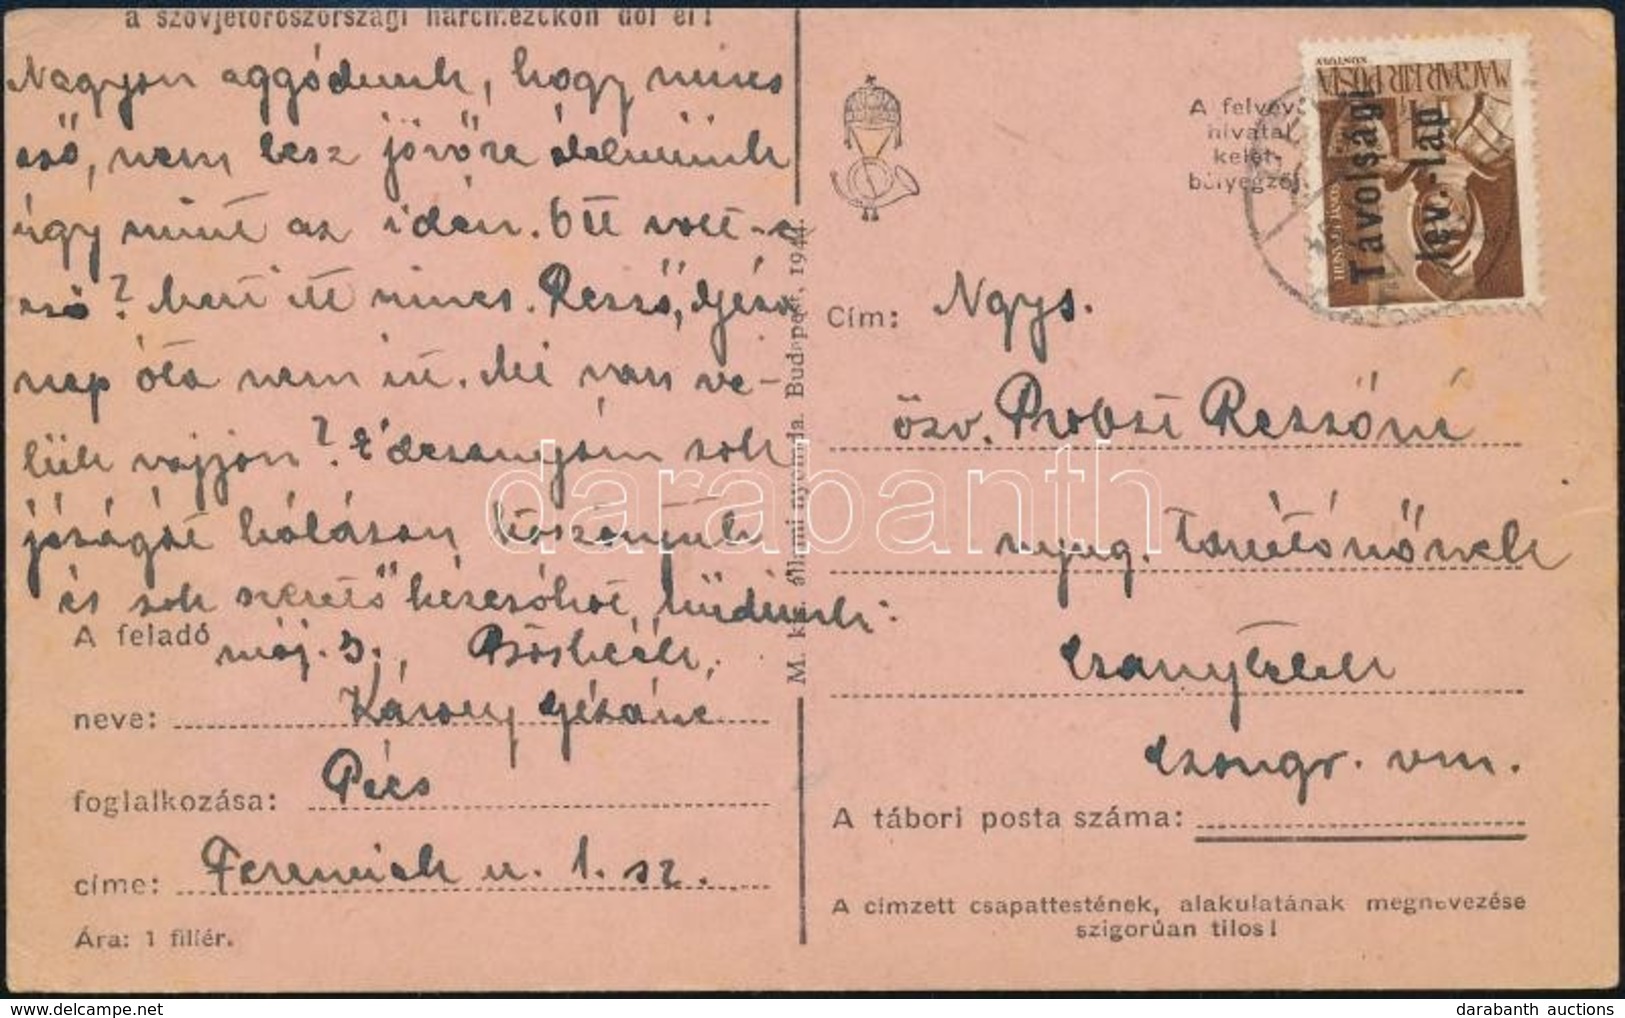 a szovjetoroszországi harcmezőkön dől el!
Nagyon aggódunk, hogy nincs
eső, nem lesz jövőre élelmünk
úgy mint az idén. Ott volt-e
eső? Mert itt nincs. Rezső, Géza
nap óta nem írt. Mi van ve-
lük vajjon? Édesanyám sok
jóságát hálásan köszönjük
és sok szerető kézcsókot küldünk:
A feladó
máj. 3.,
neve: Károly Gézáné
foglalkozása: Pécs
címe: Ferenciek u. 1. sz.
Ára: 1 fillér.
M. kir. állami nyomda. Budapest, 1944.
A felvevő
hivatal
kelet-
bélyegzője
MAGYAR KIR. POSTA
Távolsági
lev.-lap
Cím: Ngys.
özv. Probst Rezsőné
nyug. tanítónőnek
Csanytelek
Csongr. vm.
A tábori posta száma:
A címzett csapattestének, alakulatának megnevezése
szigorúan tilos!
darabanth
darabanth auctions